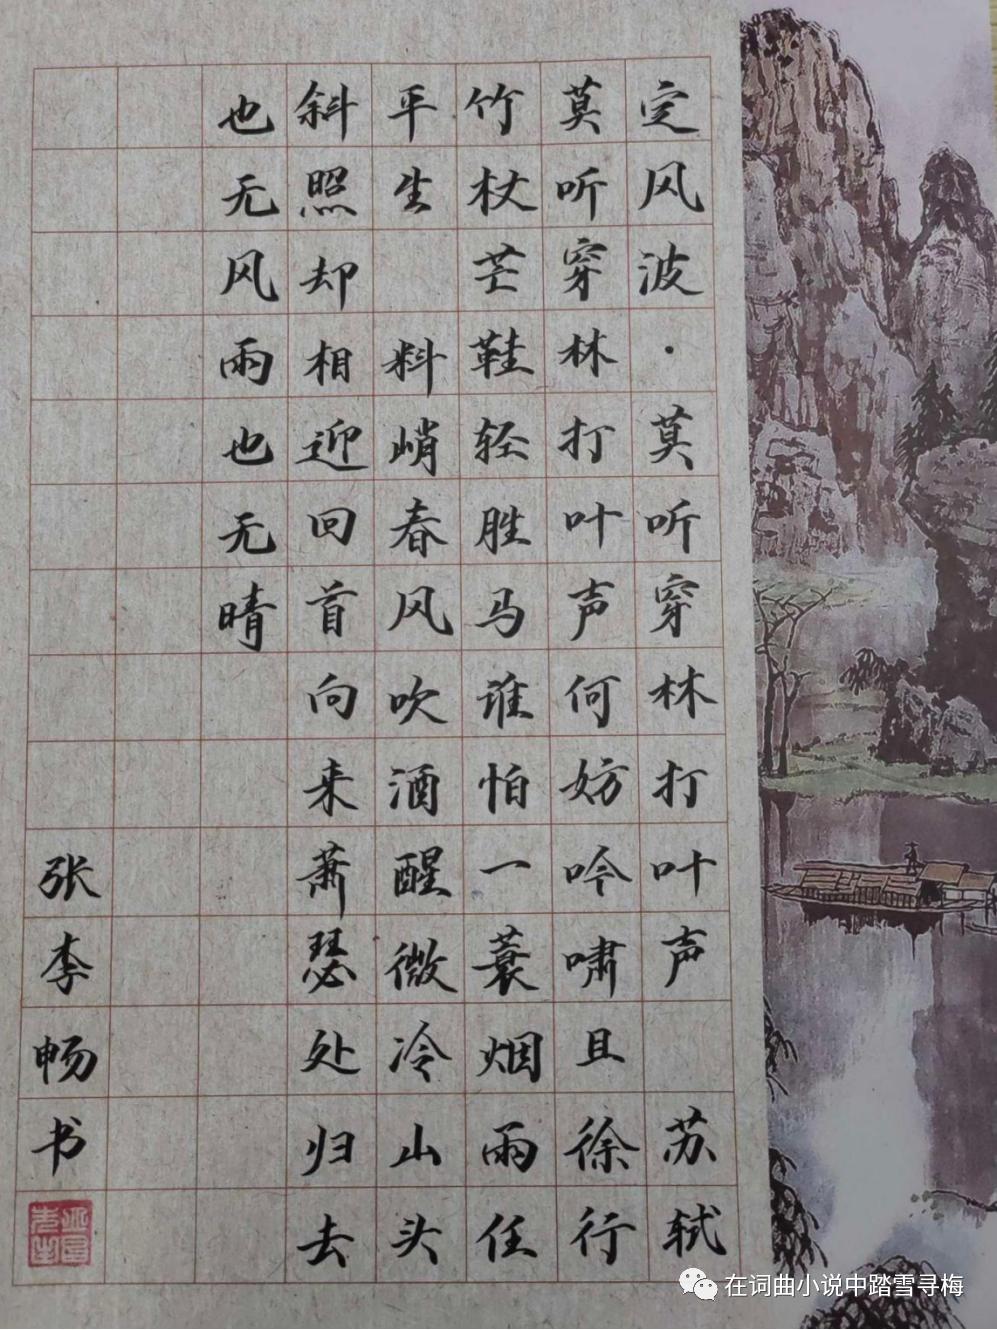 定风波·莫听穿林打叶声 苏轼
莫听穿林打叶声何妨吟啸且徐行
竹杖芒鞋轻胜马谁怕一蓑烟雨任
平生 料峭春风吹酒醒微冷山头
斜照却相迎回首向来萧瑟处归去
也无风雨也无晴
张李畅书
在词曲小说中踏雪寻梅